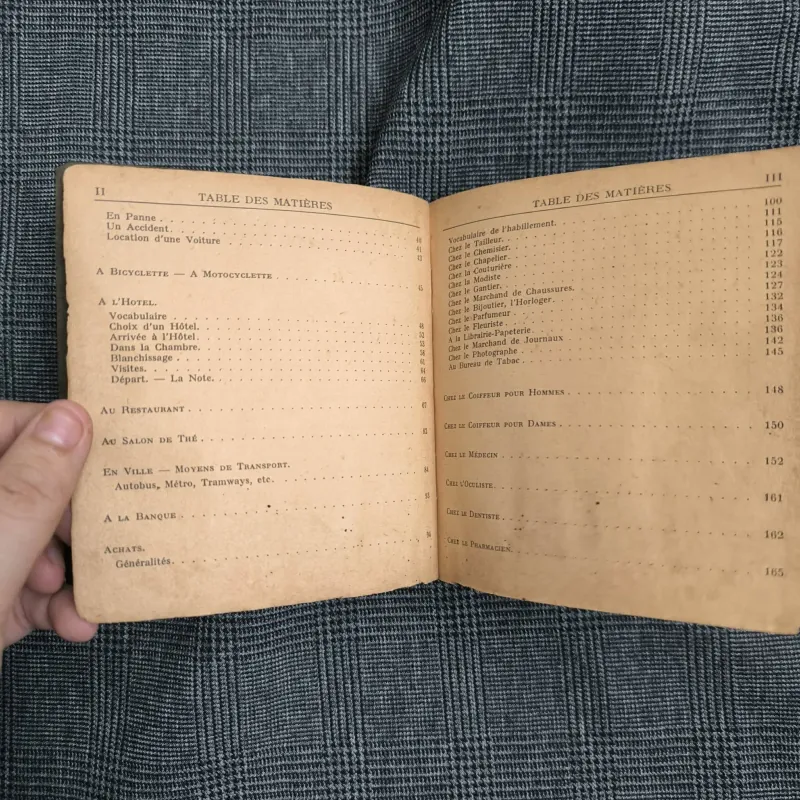 II TABLE DES MATIÈRES
En Panne 40
Un Accident 41
Location d'une Voiture 43
A Bicyclette — A Motocyclette 45
A l'Hotel.
Vocabulaire
Choix d'un Hôtel. 48
Arrivée à l'Hôtel. 52
Dans la Chambre. 53
Blanchissage 58
Visites. 61
Départ. — La Note. 64
Au Restaurant 67
Au Salon de Thé
En Ville — Moyens de Transport.
Autobus, Métro, Tramways, etc. 84
A la Banque 93
Achats.
Généralités.
TABLE DES MATIÈRES III
Vocabulaire de l'habillement. 100
Chez le Tailleur. 111
Chez le Chemisier. 115
Chez le Chapelier 116
Chez la Couturière 117
Chez la Modiste 122
Chez le Gantier. 123
Chez le Marchand de Chaussures. 124
Chez le Bijoutier, l'Horloger. 127
Chez le Parfumeur 132
Chez le Fleuriste 134
A la Librairie-Papeterie 136
Chez le Marchand de Journaux 136
Chez le Photographe 142
Au Bureau de Tabac 145
Chez le Coiffeur pour Hommes 148
Chez le Coiffeur pour Dames 150
Chez le Médecin 152
Chez l'Oculiste 161
Chez le Dentiste 162
Chez le Pharmacien. 165